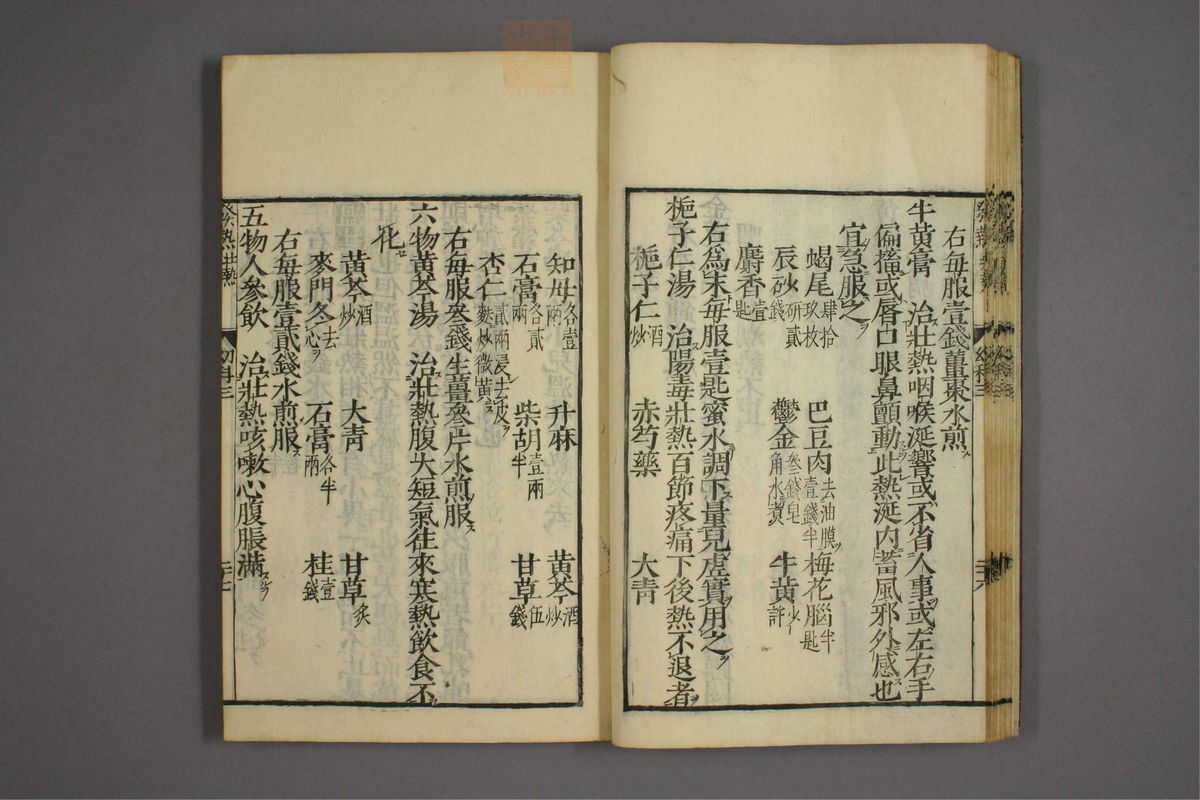 右每服壹錢薑棗水煎ス
牛黃膏　治壯熱咽喉涎響或不省人事或左右手
偏搐或唇口眼鼻顫動此熱涎內蓄風邪外感也
宜急服之
蝎尾肆拾玖枚　巴豆肉去油膜壹錢半　梅花腦半匙
辰砂研貳錢　鬱金叄錢皂角水煑　牛黃少許
麝香壹匙
右爲末每服壹匙蜜水調下量兒虛實用之
梔子仁湯　治陽毒壯熱百節疼痛下後熱不退者
梔子仁酒炒　赤芍藥　大青
知母各壹兩　升麻　黃芩酒炒
石膏各貳兩　柴胡壹兩半　甘草伍錢
杏仁貳兩浸去皮麩炒微黃
右每服叄錢生薑叄片水煎服
六物黃芩湯　治壯熱腹大短氣往來寒熱飮食不
化
黃芩酒炒　大青　甘草炙
麥門冬去心　石膏各半兩　桂壹錢
右每服壹貳錢水煎服
五物人參飮　治壯熱咳嗽心腹脹滿
發熱壯熱　幼科三